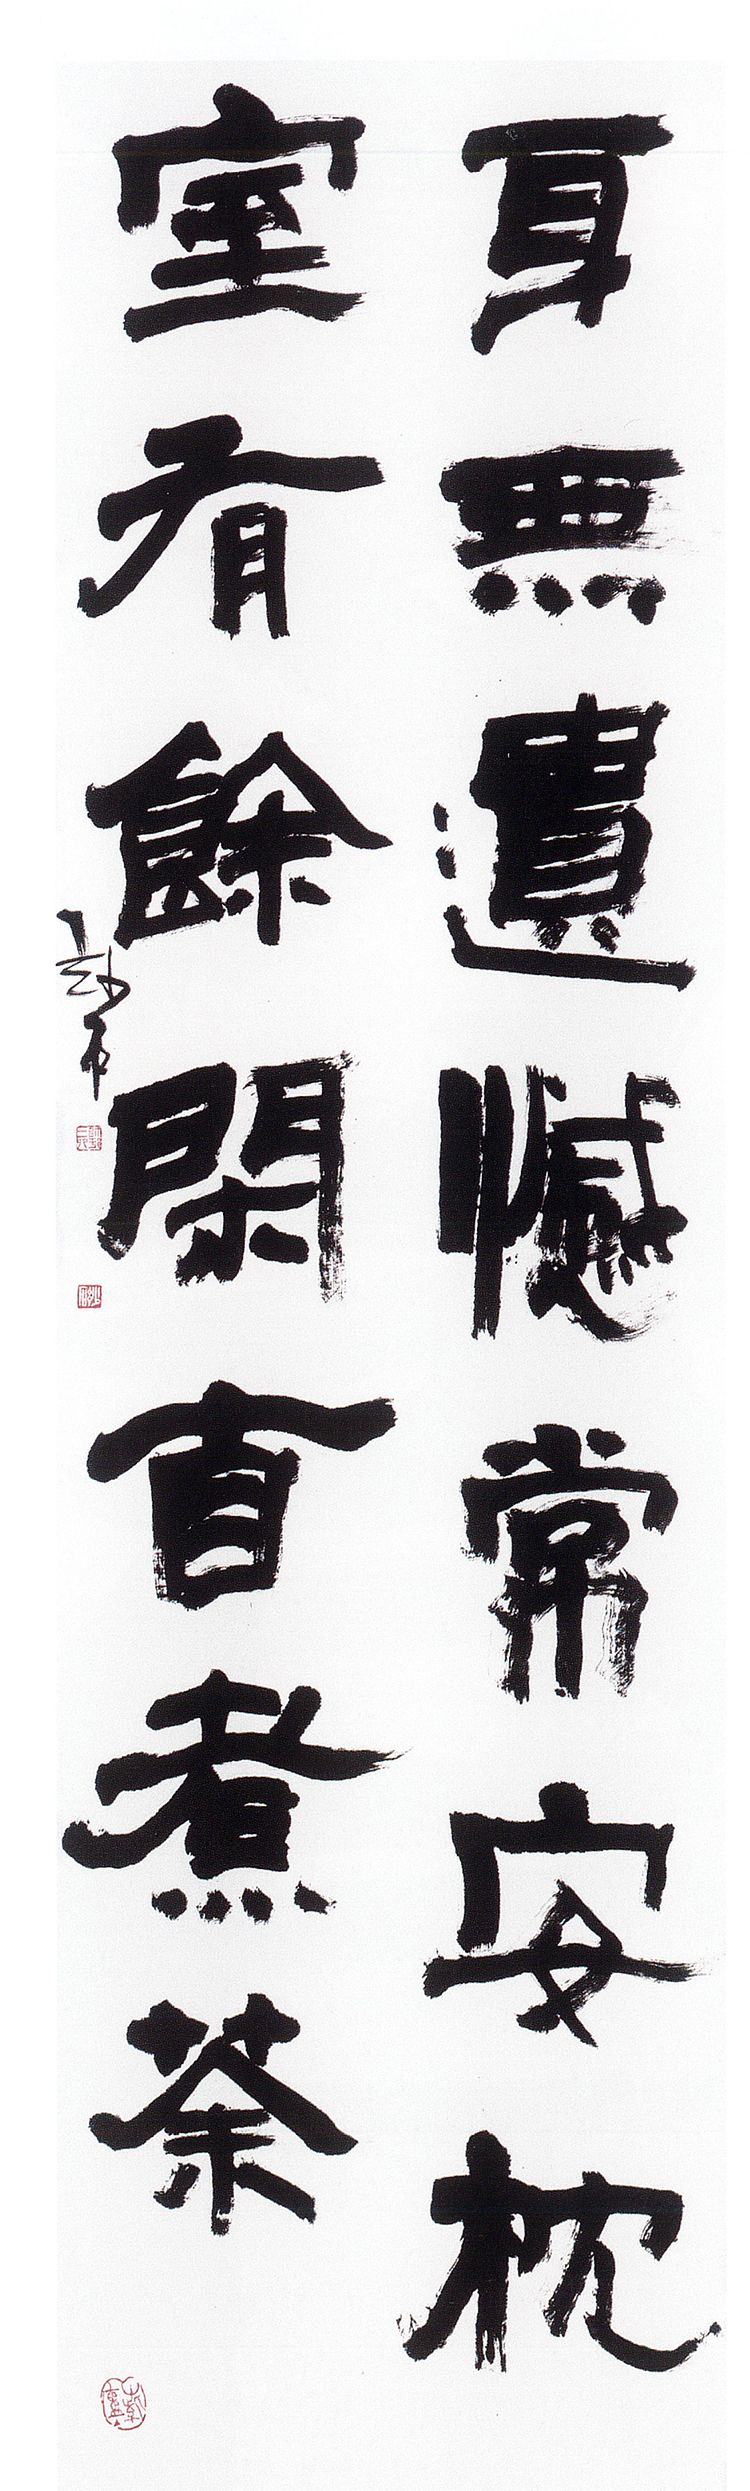 耳無遺憾常安枕
室有餘閑自煮茶